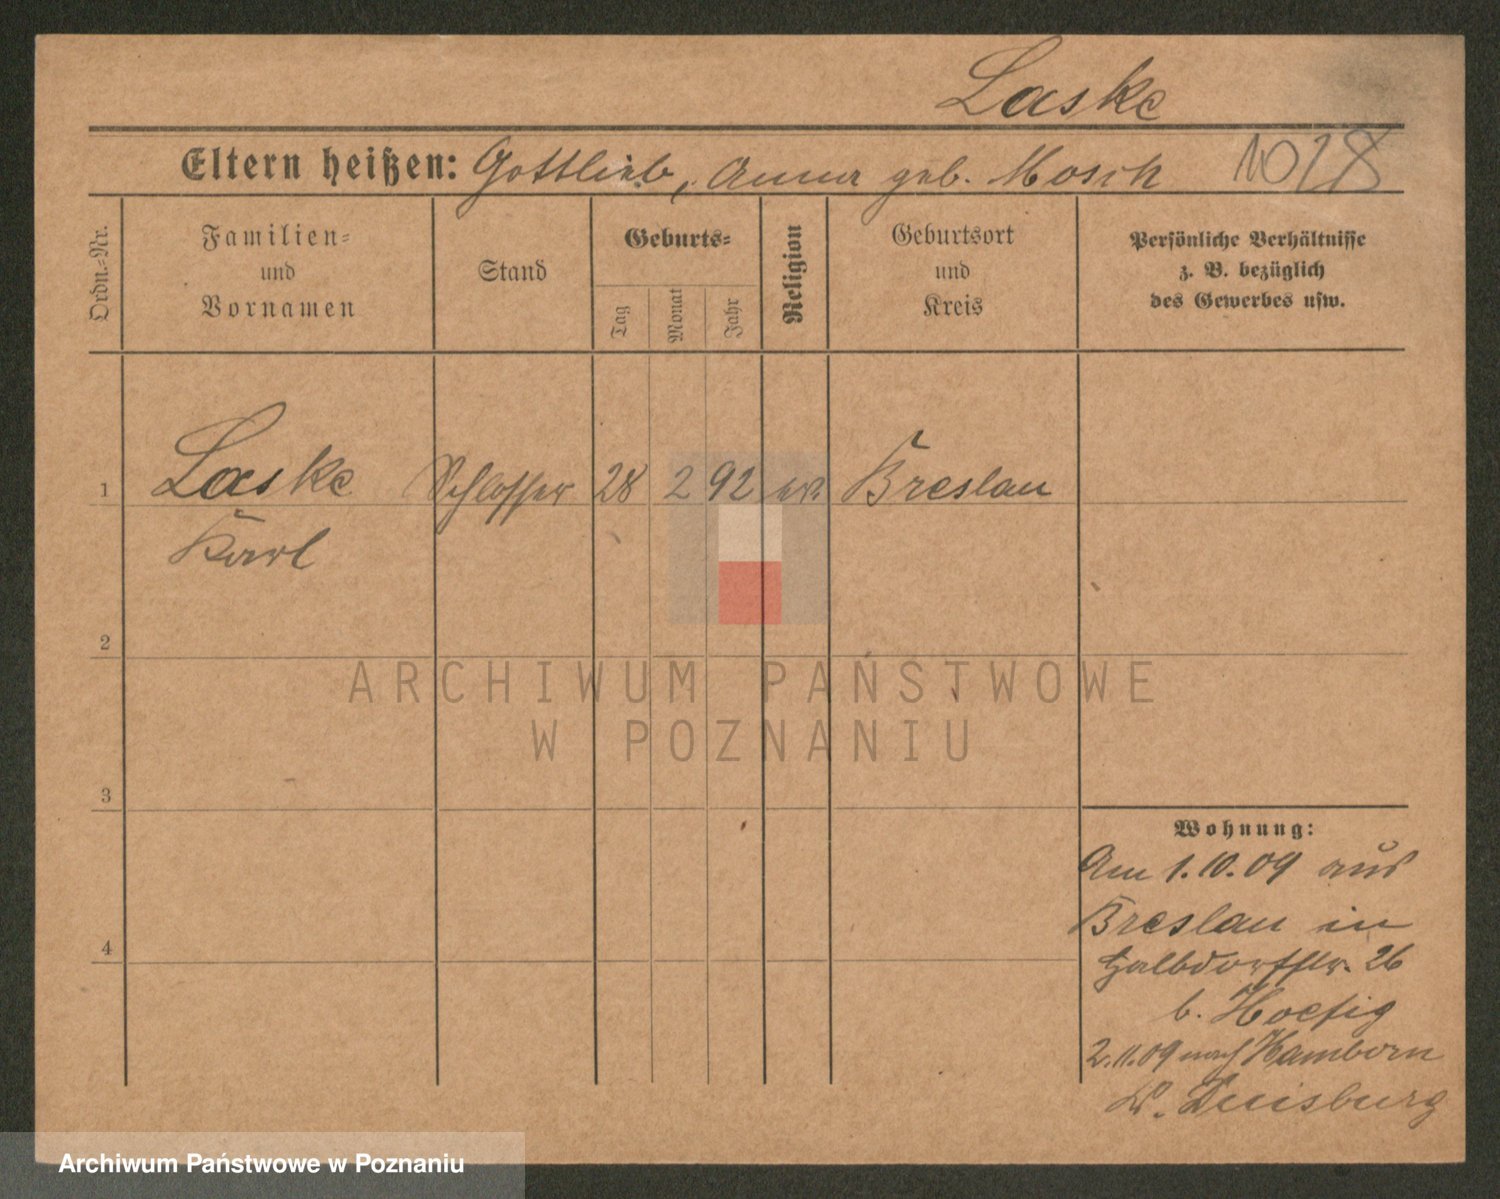 Laske
Eltern heißen: Gottlieb, Anna geb. Mosch 1018
Ordn.=Nr.
Familien=
und
Vornamen
Stand
Geburts=
Tag
Monat
Jahr
Religion
Geburtsort
und
Kreis
Persönliche Verhältnisse
z. B. bezüglich
des Gewerbes usw.
1 Laske Schlosser 28 2 92 ev. Breslau
Karl
2
3
4
Wohnung:
Am 1.10.09 aus
Breslau in
Halbdorfstr. 26
b. Hoefig
2.11.09 nach Hamborn
Kr. Duisburg
ARCHIWUM PAŃSTWOWE
W POZNANIU
Archiwum Państwowe w Poznaniu